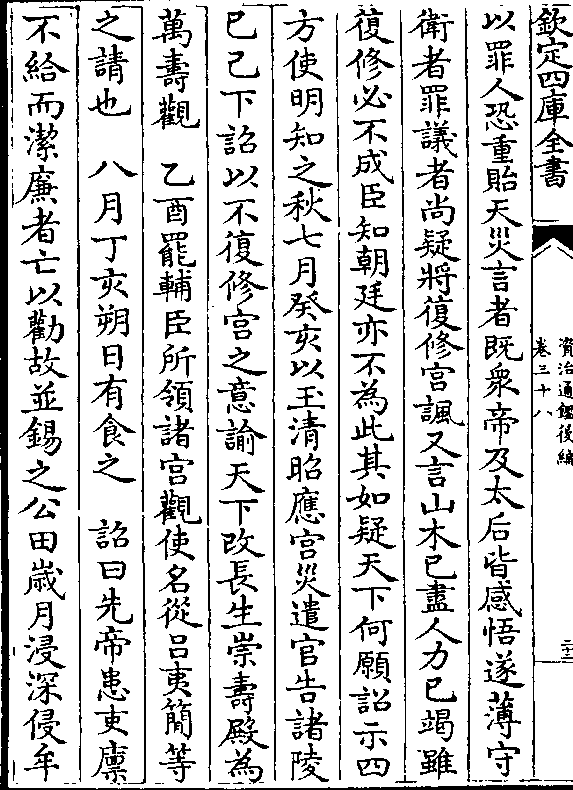 欽定四庫全書
資治通鑑後編
卷三十八
二十二
以罪人恐重貽天災言者既衆帝及太后皆感悟遂薄守
衛者罪議者尚疑將復修宮諷又言山木已盡人力已竭雖
復修必不成臣知朝廷亦不為此其如疑天下何願詔示四
方使明知之秋七月癸亥以玉清昭應宮災遣官告諸陵
已己下詔以不復修宮之意諭天下改長生崇壽殿為
萬壽觀　乙酉罷輔臣所領諸宮觀使名從吕夷簡等
之請也　八月丁亥朔日有食之　詔曰先帝患吏廪
不給而潔廉者亡以勸故並錫之公田歲月浸深侵牟